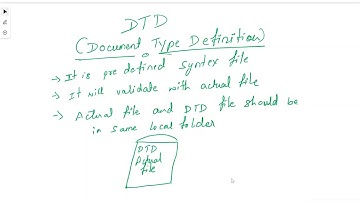 DTD
(Document Type Definition)
→ It is pre defined syntex file
→ It will validate with actual file
→ Actual file and DTD file should be
in same local folder
DTD
Actual
file